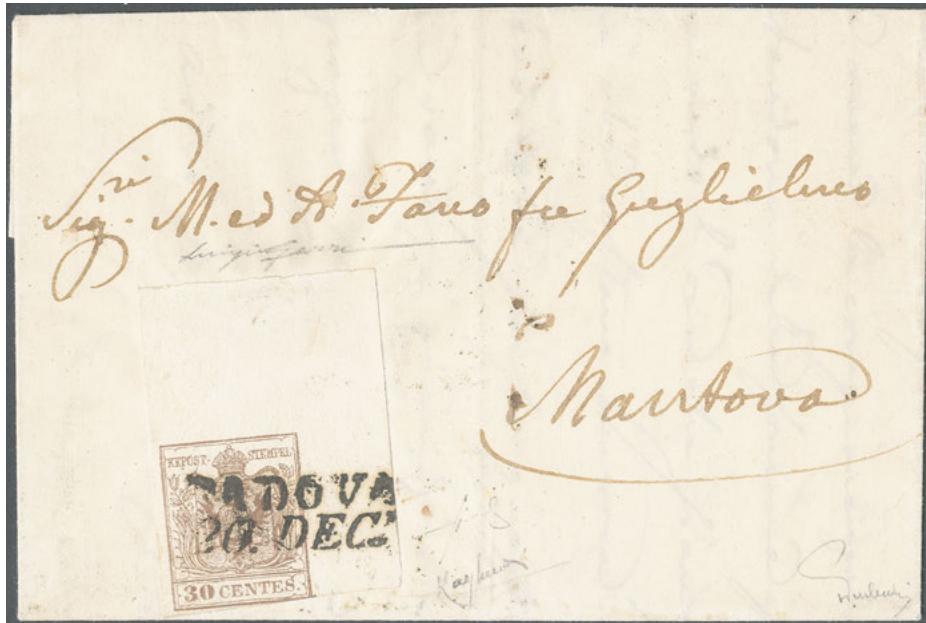 Sig.ri M. ed A. Fano fu Guglielmo
Mantova
KKPOST-STEMPEL
PADOVA
20. DEC.
30 CENTES.